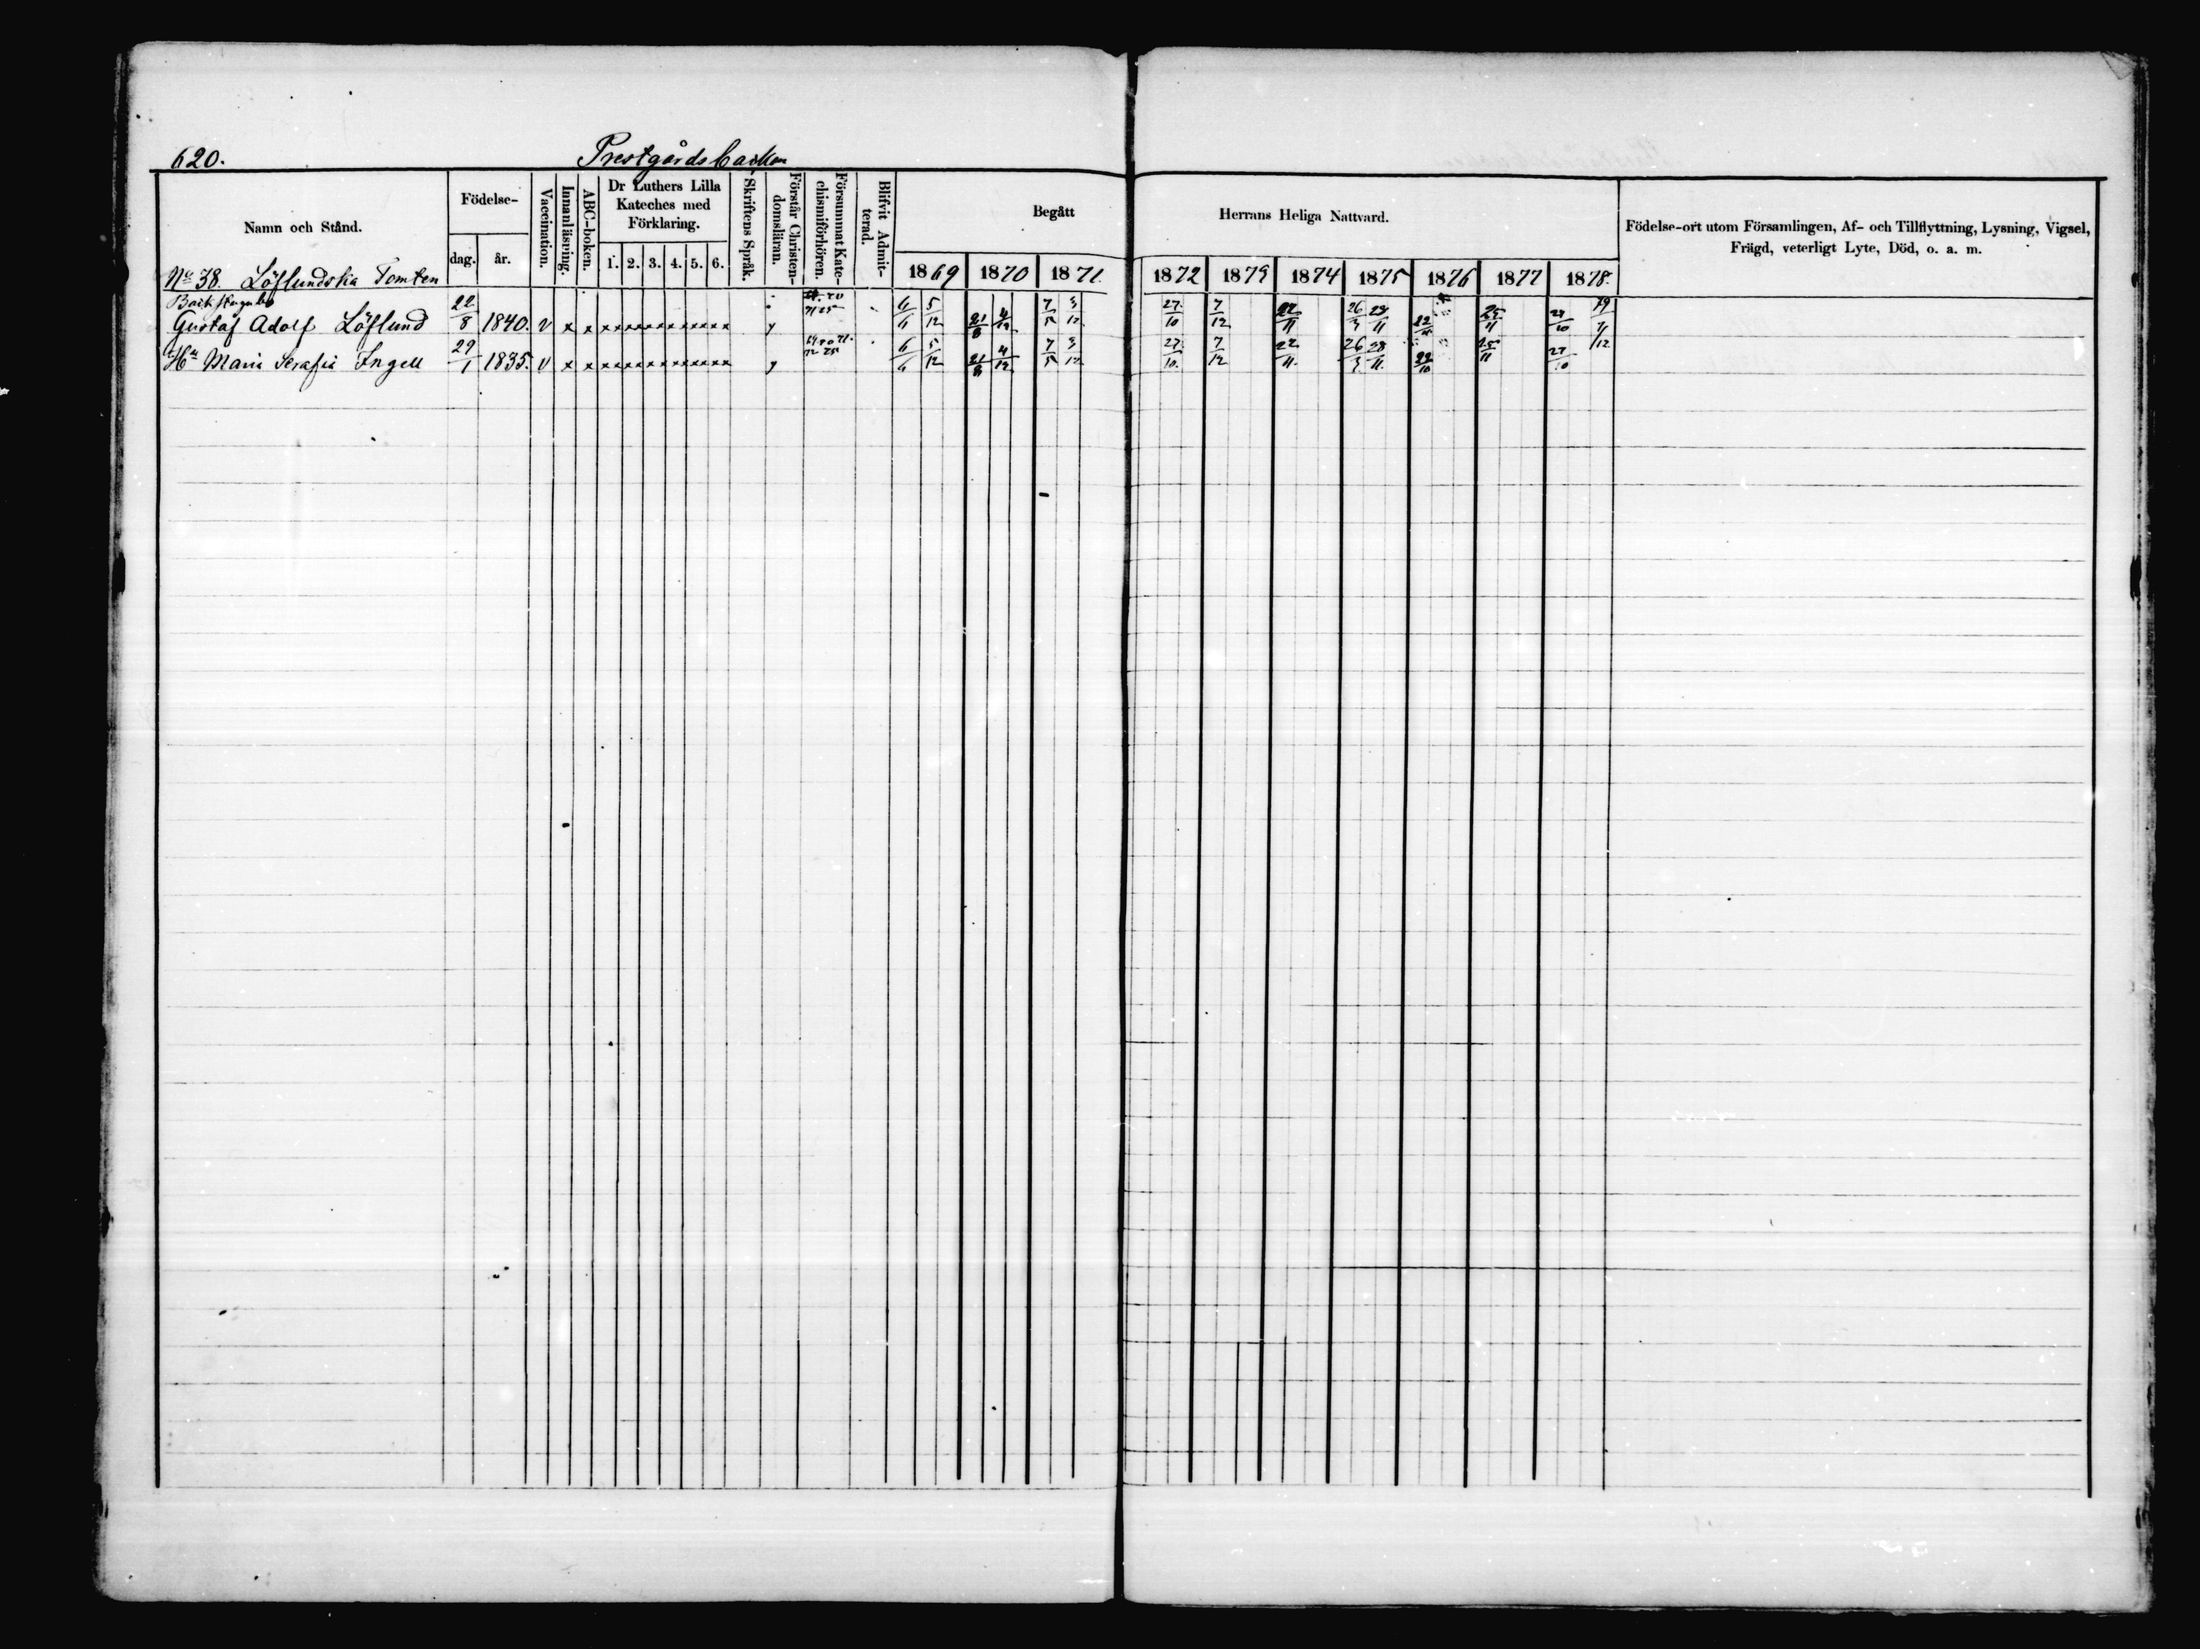 620. Prestgårdsbacken
Namn och Stånd. Födelse- dag. år. Vaccination. Innanläsning. ABC-boken. Dr Luthers Lilla Kateches med Förklaring. 1. 2. 3. 4. 5. 6. Skriftens Språk. Förstår Christendomsläran. Försummat Katechismiförhören. Blifvit Admitterad. Begått Herrans Heliga Nattvard. Födelse-ort utom Församlingen, Af- och Tillflyttning, Lysning, Vigsel, Frägd, veterligt Lyte, Död, o. a. m.
1869 1870 1871. 1872 1873 1874 1875 1876 1877 1878.
No 38. Löflundska Tomten
Gustaf Adolf Löflund 22/8 1840. v x x x x x x x x x x x x x x y 6/6 5/12 21/8 4/12 7/5 3/12 27/10 7/12 22/11 26/3 28/11 22/10 25/11 27/10 79
Hu Maria Serafia Ingell 29/1 1835. v x x x x x x x x x x x x x x y 6/6 5/12 21/8 4/12 7/5 3/12 27/10. 7/12 22/11. 26/3 28/11. 22/10 25/11 27/10